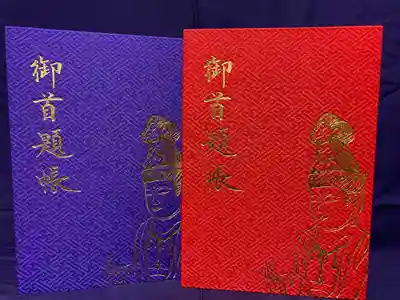 御首題帳
御首題帳